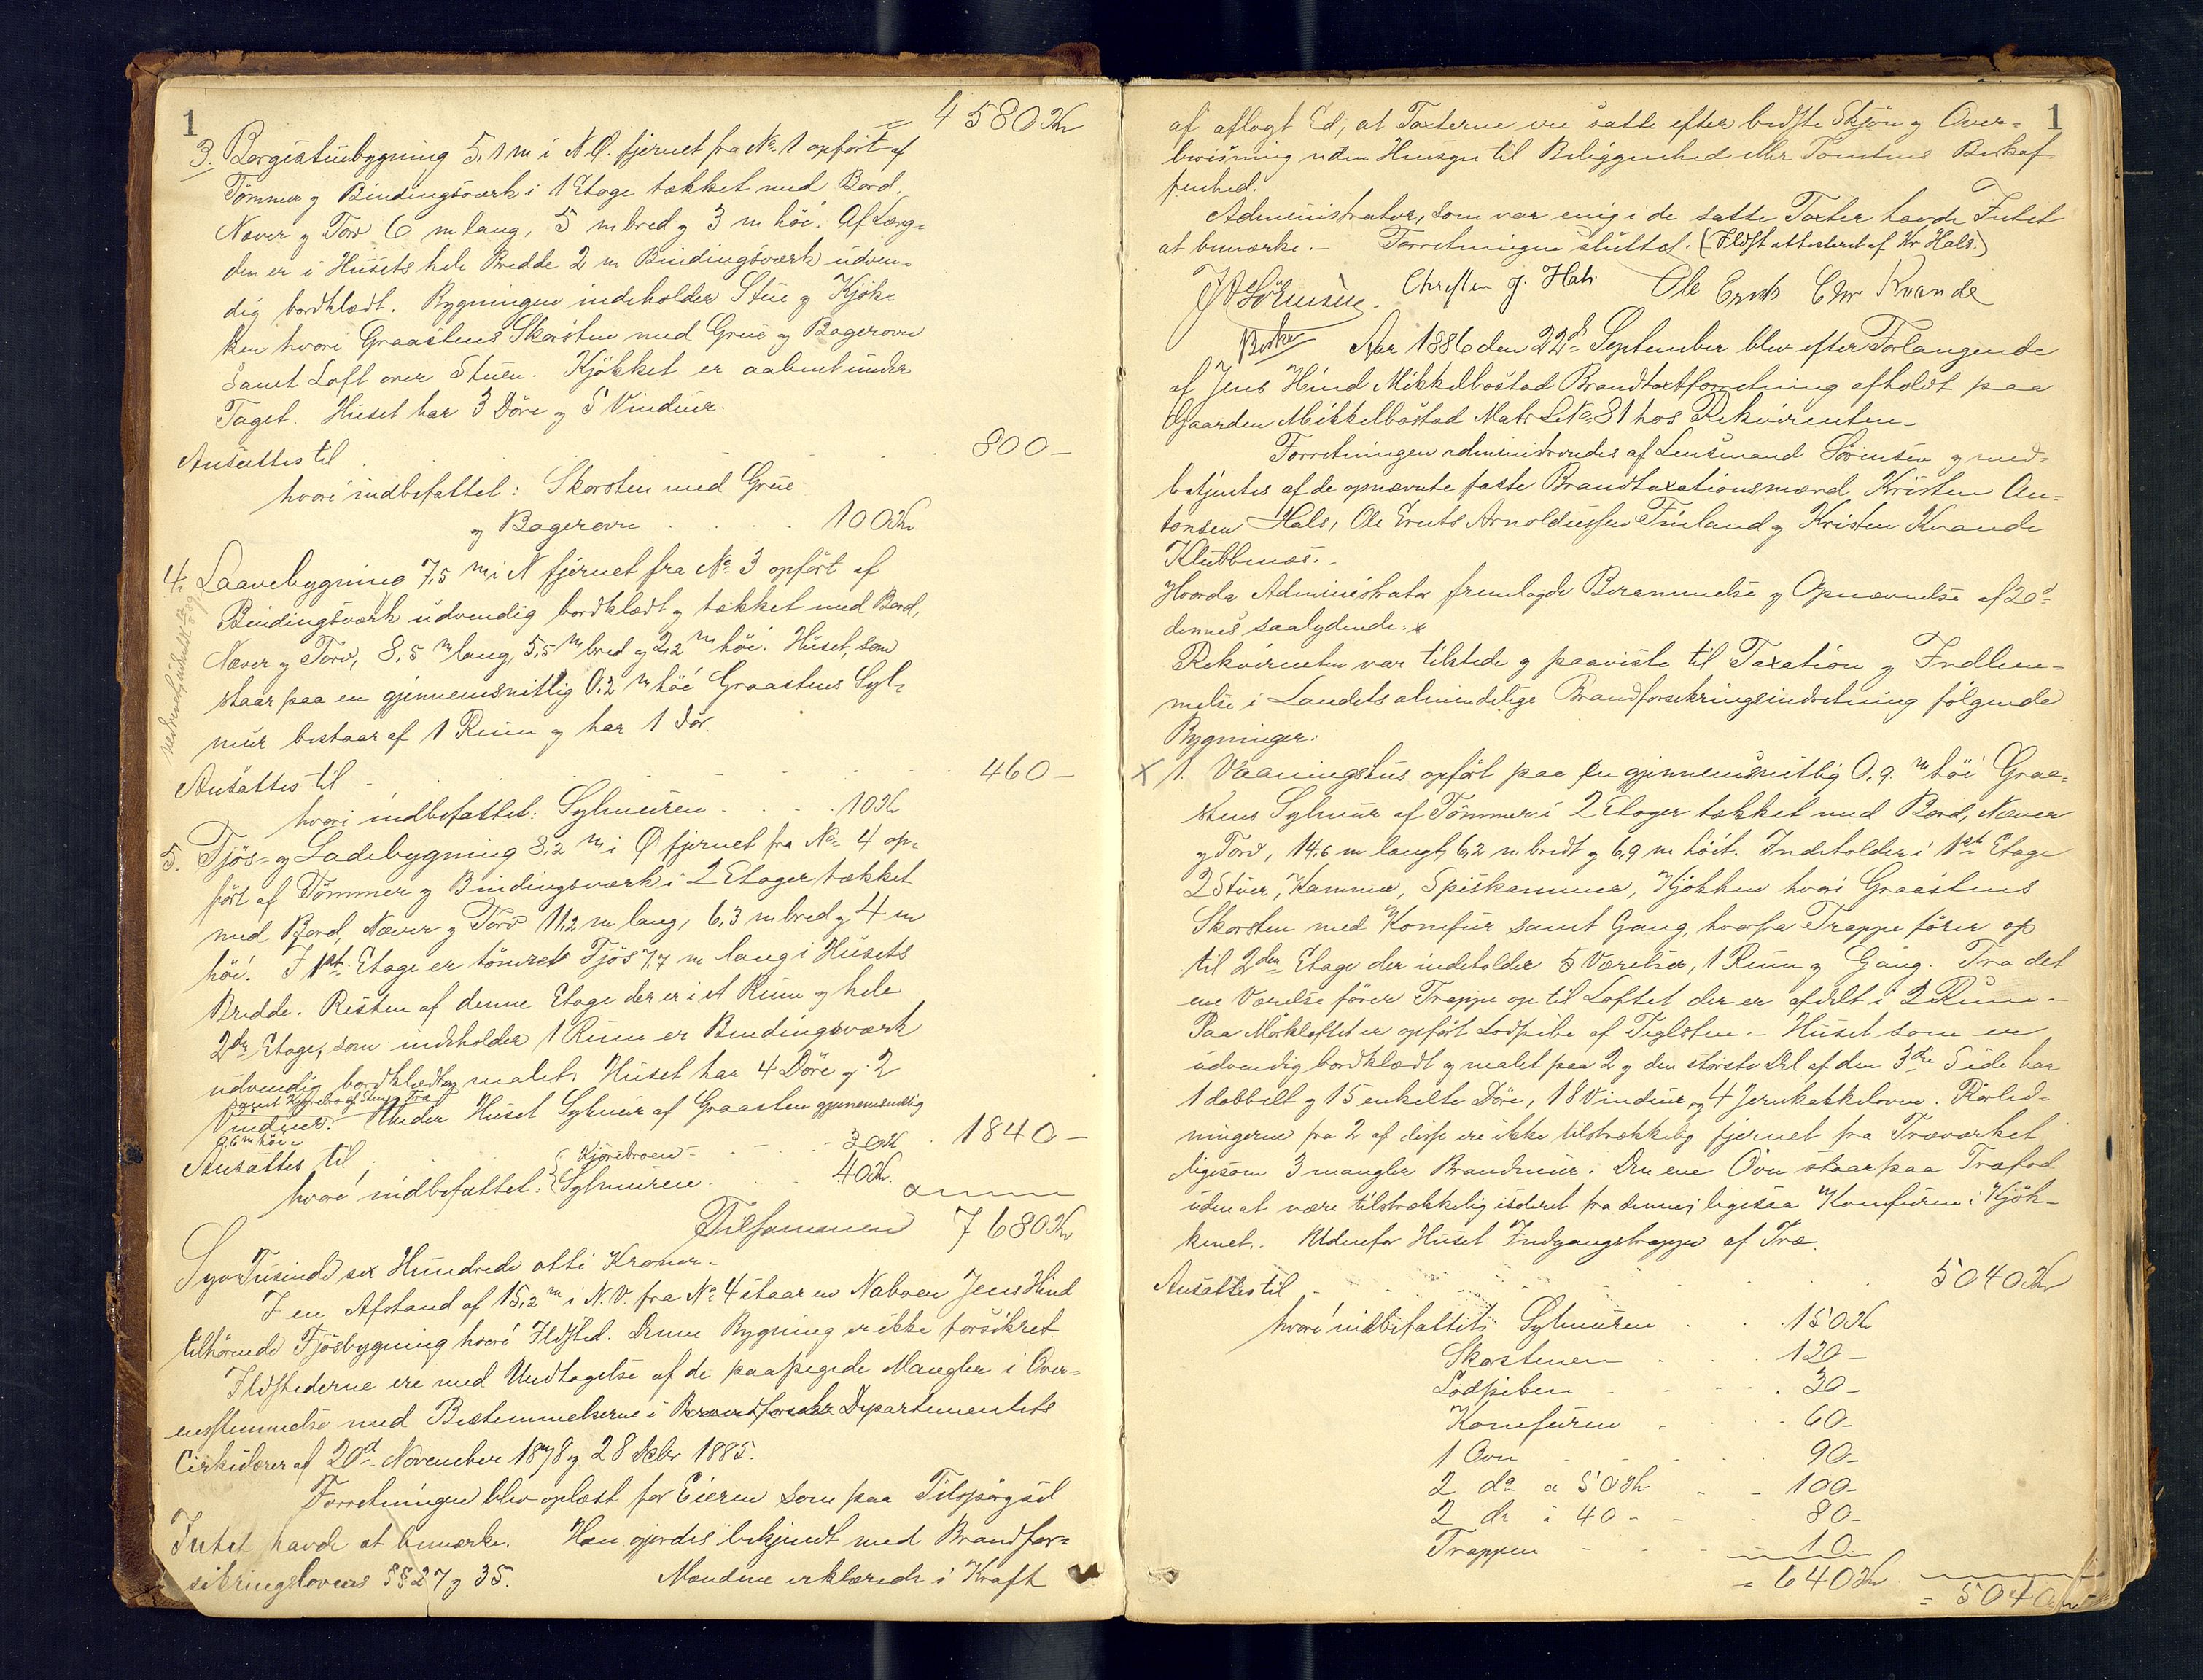 1
= 4580 Kr
3. Borgestuebygning 5,1 m i N.Ø. fjernet fra No 1 opført af
Tømmer og Bindingsværk i 1 Etage tækket med Bord,
Næver og Torv 6 m lang, 5 m bred og 3 m høi. Af Læng-
den er i Husets hele Bredde 2 m Bindingsværk udven-
dig bordklædt. Bygningen indeholder Stue og Kjøk-
ken hvori Graastens Skorsten med Grue og Bagerovn
samt Loft over Stuen. Kjøkket er aabent under
Taget. Huset har 3 Døre og 5 Vinduer.
Ansættes til 800 –
hvori indbefattet: Skorsten med Grue
og Bagerovn 100 Kr
4. Laavebygning 7,5 m i N fjernet fra No 3 opført af
Bindingsværk udvendig bordklædt og tækket med Bord,
Næver og Torv, 8,5 m lang, 5,5 m bred og 2,2 m høi. Huset, som
staar paa en gjennemsnitlig 0,2 m høi Graastens Syl-
mur bestaar af 1 Rum og har 1 Dør.
Ansættes til 460 –
hvori indbefattet: Sylmuren 10 Kr
5. Fjøs- og Ladebygning 8,2 m i Ø fjernet fra No 4 op-
ført af Tømmer og Bindingsværk i 2 Etager tækket
med Bord, Næver og Torv 11,2 m lang, 6,3 m bred og 4 m
høi. I 1ste Etage er tømret Fjøs 7,7 m lang i Husets
Bredde. Resten af denne Etage der er i et Rum og hele
2den Etage, som indeholder 1 Rum er Bindingsværk
udvendig bordklædt og malet. Huset har 4 Døre og 2
samt Kjørebro af Sten og Træ
Vinduer. Under Huset Sylmur af Graasten gjennemsnitlig
0,6 m høi.
Ansættes til 1840 –
Kjørebroen 30 Kr
hvori indbefattet: Sylmuren 40 Kr.
Tilsammen 7680 Kr
Syv Tusinde sex Hundrede otti Kroner.
I en Afstand af 15,2 m i N.V. fra No 4 staar en Naboen Jens Hind
tilhørende Fjøsbygning hvori Ildsted. Denne Bygning er ikke forsikret.
Ildstederne ere med Undtagelse af de paapegede Mangler i Over-
ensstemmelse med Bestemmelserne i Departementets
Cirkulærer af 20d November 1878 og 28 Debr 1885.
Forretningen blev oplæst for Eieren som paa Tilspørgsel
Intet havde at bemærke. Han gjordes bekjendt med Brandfor-
sikringslovens §§ 27 og 35. Mændene erklærede i Kraft
1
af aflagt Ed, at Taxterne ere satte efter bedste Skjøn og Over-
bevisning uden Hensyn til Beliggenhed eller Tomtens Beskaf-
fenhed.
Administrator, som var enig i de satte Taxter havde Intet
at bemærke. – Forretningen sluttet. (Ildst attesteret af Kr Hals.)
Sørensen. Christen J. Hals Ole Ernts Chr Kvande
Aar 1886 den 22d September blev efter Forlangende
af Jens Hind Mikkelbostad Brandtaxtforretning afholdt paa
Gaarden Mikkelbostad Matr LNo 81 hos Rekvirenten.
Forretningen administreredes af Lensmand Sørensen og med-
betjentes af de opnævnte faste Brandtaxationsmænd, Kristen An-
tonsen Hals, Ole Ernts Arnoldussen Finland og Kristen Kvande
Klubbnæs.
Hvorda Administrator fremlagde Berammelse og Opnævnelse af 20d
dennes saalydende: x
Rekvirenten var tilstede og paaviste til Taxation og Indlem-
melse i Landets almindelige Brandforsikringsindretning følgende
Bygninger:
x 1. Vaaningshus opført paa en gjennemsnitlig 0,9 m høi Graa-
stens Sylmur af Tømmer i 2 Etager tækket med Bord, Næver
og Torv, 14,6 m langt, 6,2 m bredt og 6,9 m høit. Indeholder i 1ste Etage
2 Stuer, Kammer, Spiskammer, Kjøkken hvori Graastens
Skorsten med Komfur samt Gang, hvorfra Trappe fører op
til 2den Etage der indeholder 5 Værelser, 1 Rum og Gang. Fra det
ene Værelse fører Trappe op til Loftet der er afdelt i 2 Rum. –
Paa Mørkloftet er opført Lodpibe af Teglsten. – Huset som er
udvendig bordklædt og malet paa 2 og den største Del af den 3die Side har
1 dobbelt og 15 enkelte Døre, 18 Vinduer og 4 Jernkakkelovne. Rørled-
ningerne fra 2 af disse ere ikke tilstrækkelig fjernet fra Træværket
ligesom 3 mangler Brandmur. Den ene Ovn staar paa Træfod
uden at være tilstrækkelig isoleret fra denne; ligesaa Komfuren i Kjøk-
kenet. Udenfor Huset Indgangstrappe af Træ.
Ansættes til 5040 Kr
hvori indbefattet: Sylmuren 150 Kr
Skorstenen 120 –
Lodpiben 30 –
Komfuren 60 –
1 Ovn 90 –
2 do a 50 Kr 100 –
2 do a 40 – 80 –
Trappen 10
= 640 Kr
= 5040 Kr